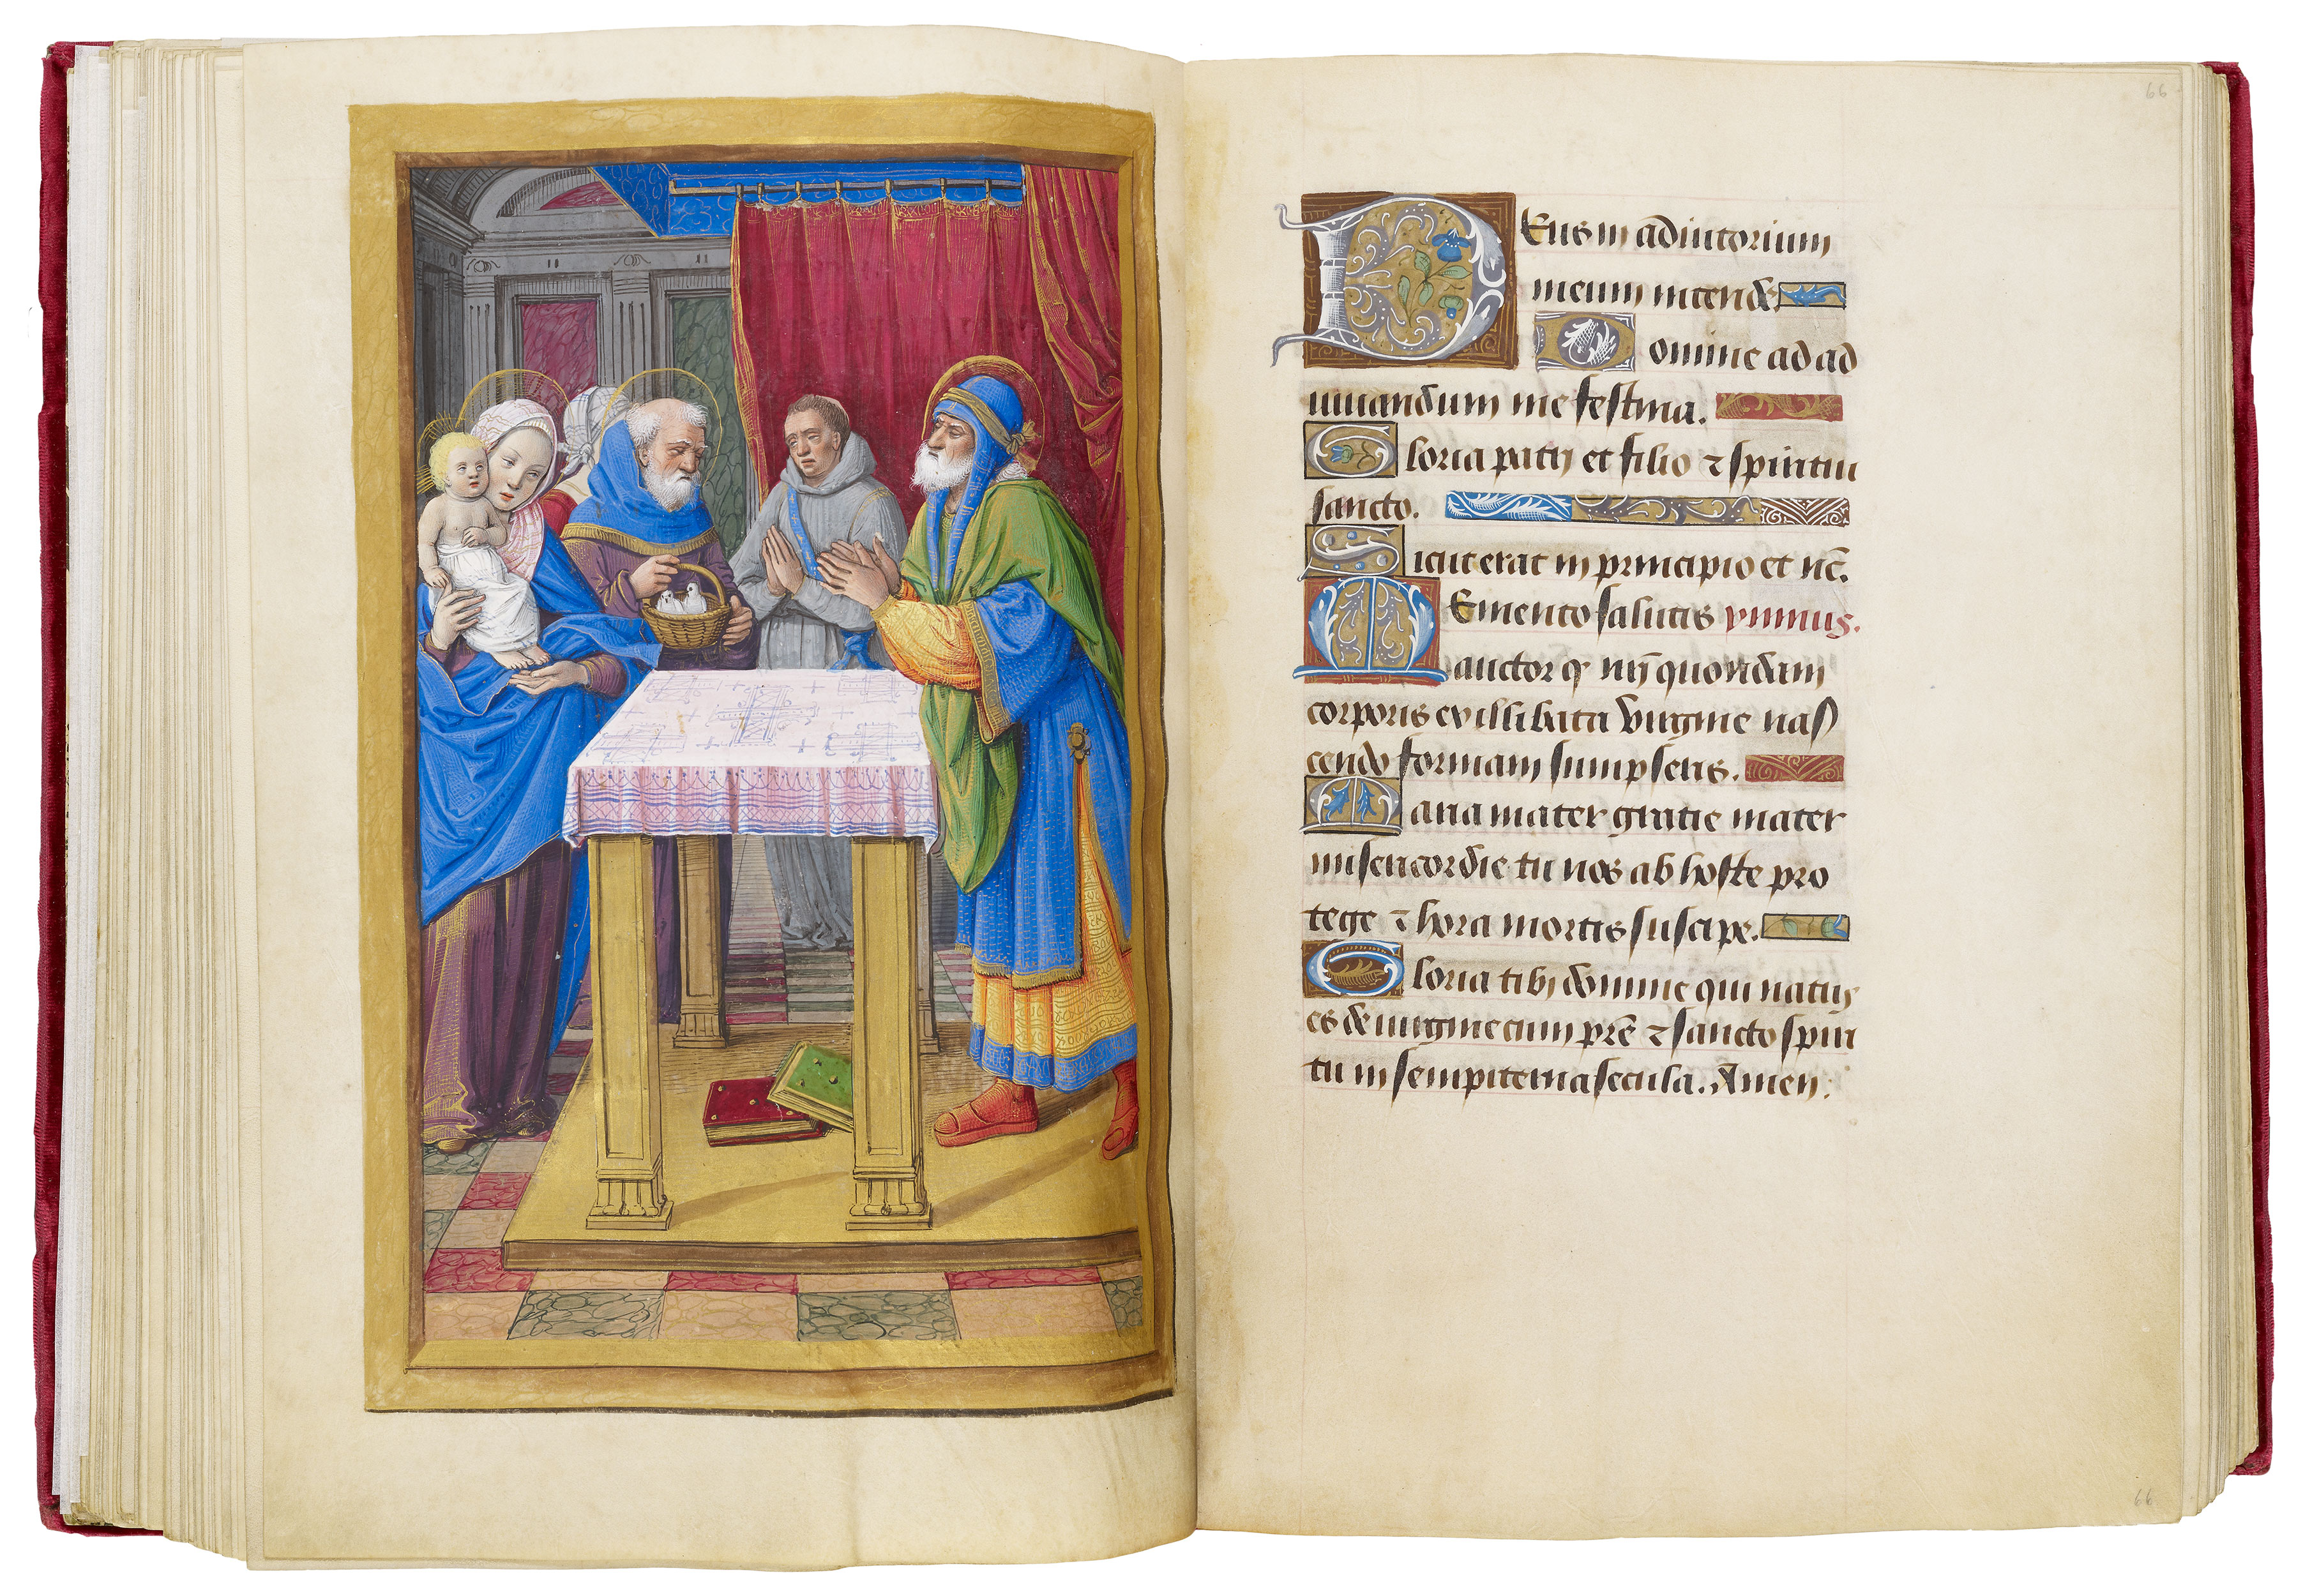 66
Deus in adiutorium
meum intende
Domine ad ad
iuuandum me festina.
Gloria patri et filio ⁊ spiritui
sancto.
Sicut erat in principio et nc̄.
Memento salutis ymnus.
auctor qͥ nr̄i quondam
corporis ex illibata virgine nas
cendo formam sumpseris.
Maria mater gratie mater
misericordie tu nos ab hoste pro
tege ⁊ hora mortis suscipe.
Gloria tibi domine qui natus
es de uirgine cum pr̄e ⁊ sancto spiri
tu in sempiterna secula. Amen.
66